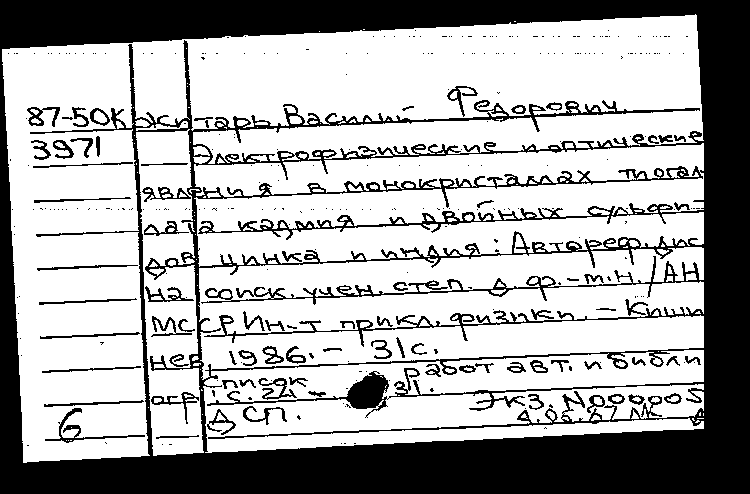 87-50К Житарь, Василий Федорович.
3971 Электрофизические и оптические
явления в монокристаллах тиогал
лата кадмия и двойных сульфи-
дов цинка и индия: Автореф. дис
на соиск. учен. степ. д. ф.-м.н. /АН
МССР, Ин-т прикл. физики. – Киши
нев, 1986. – 31 с.
Список работ авт. и библи
огр.: с. 24 – 31.
6 ДСП. Экз. N000005
4.05.87